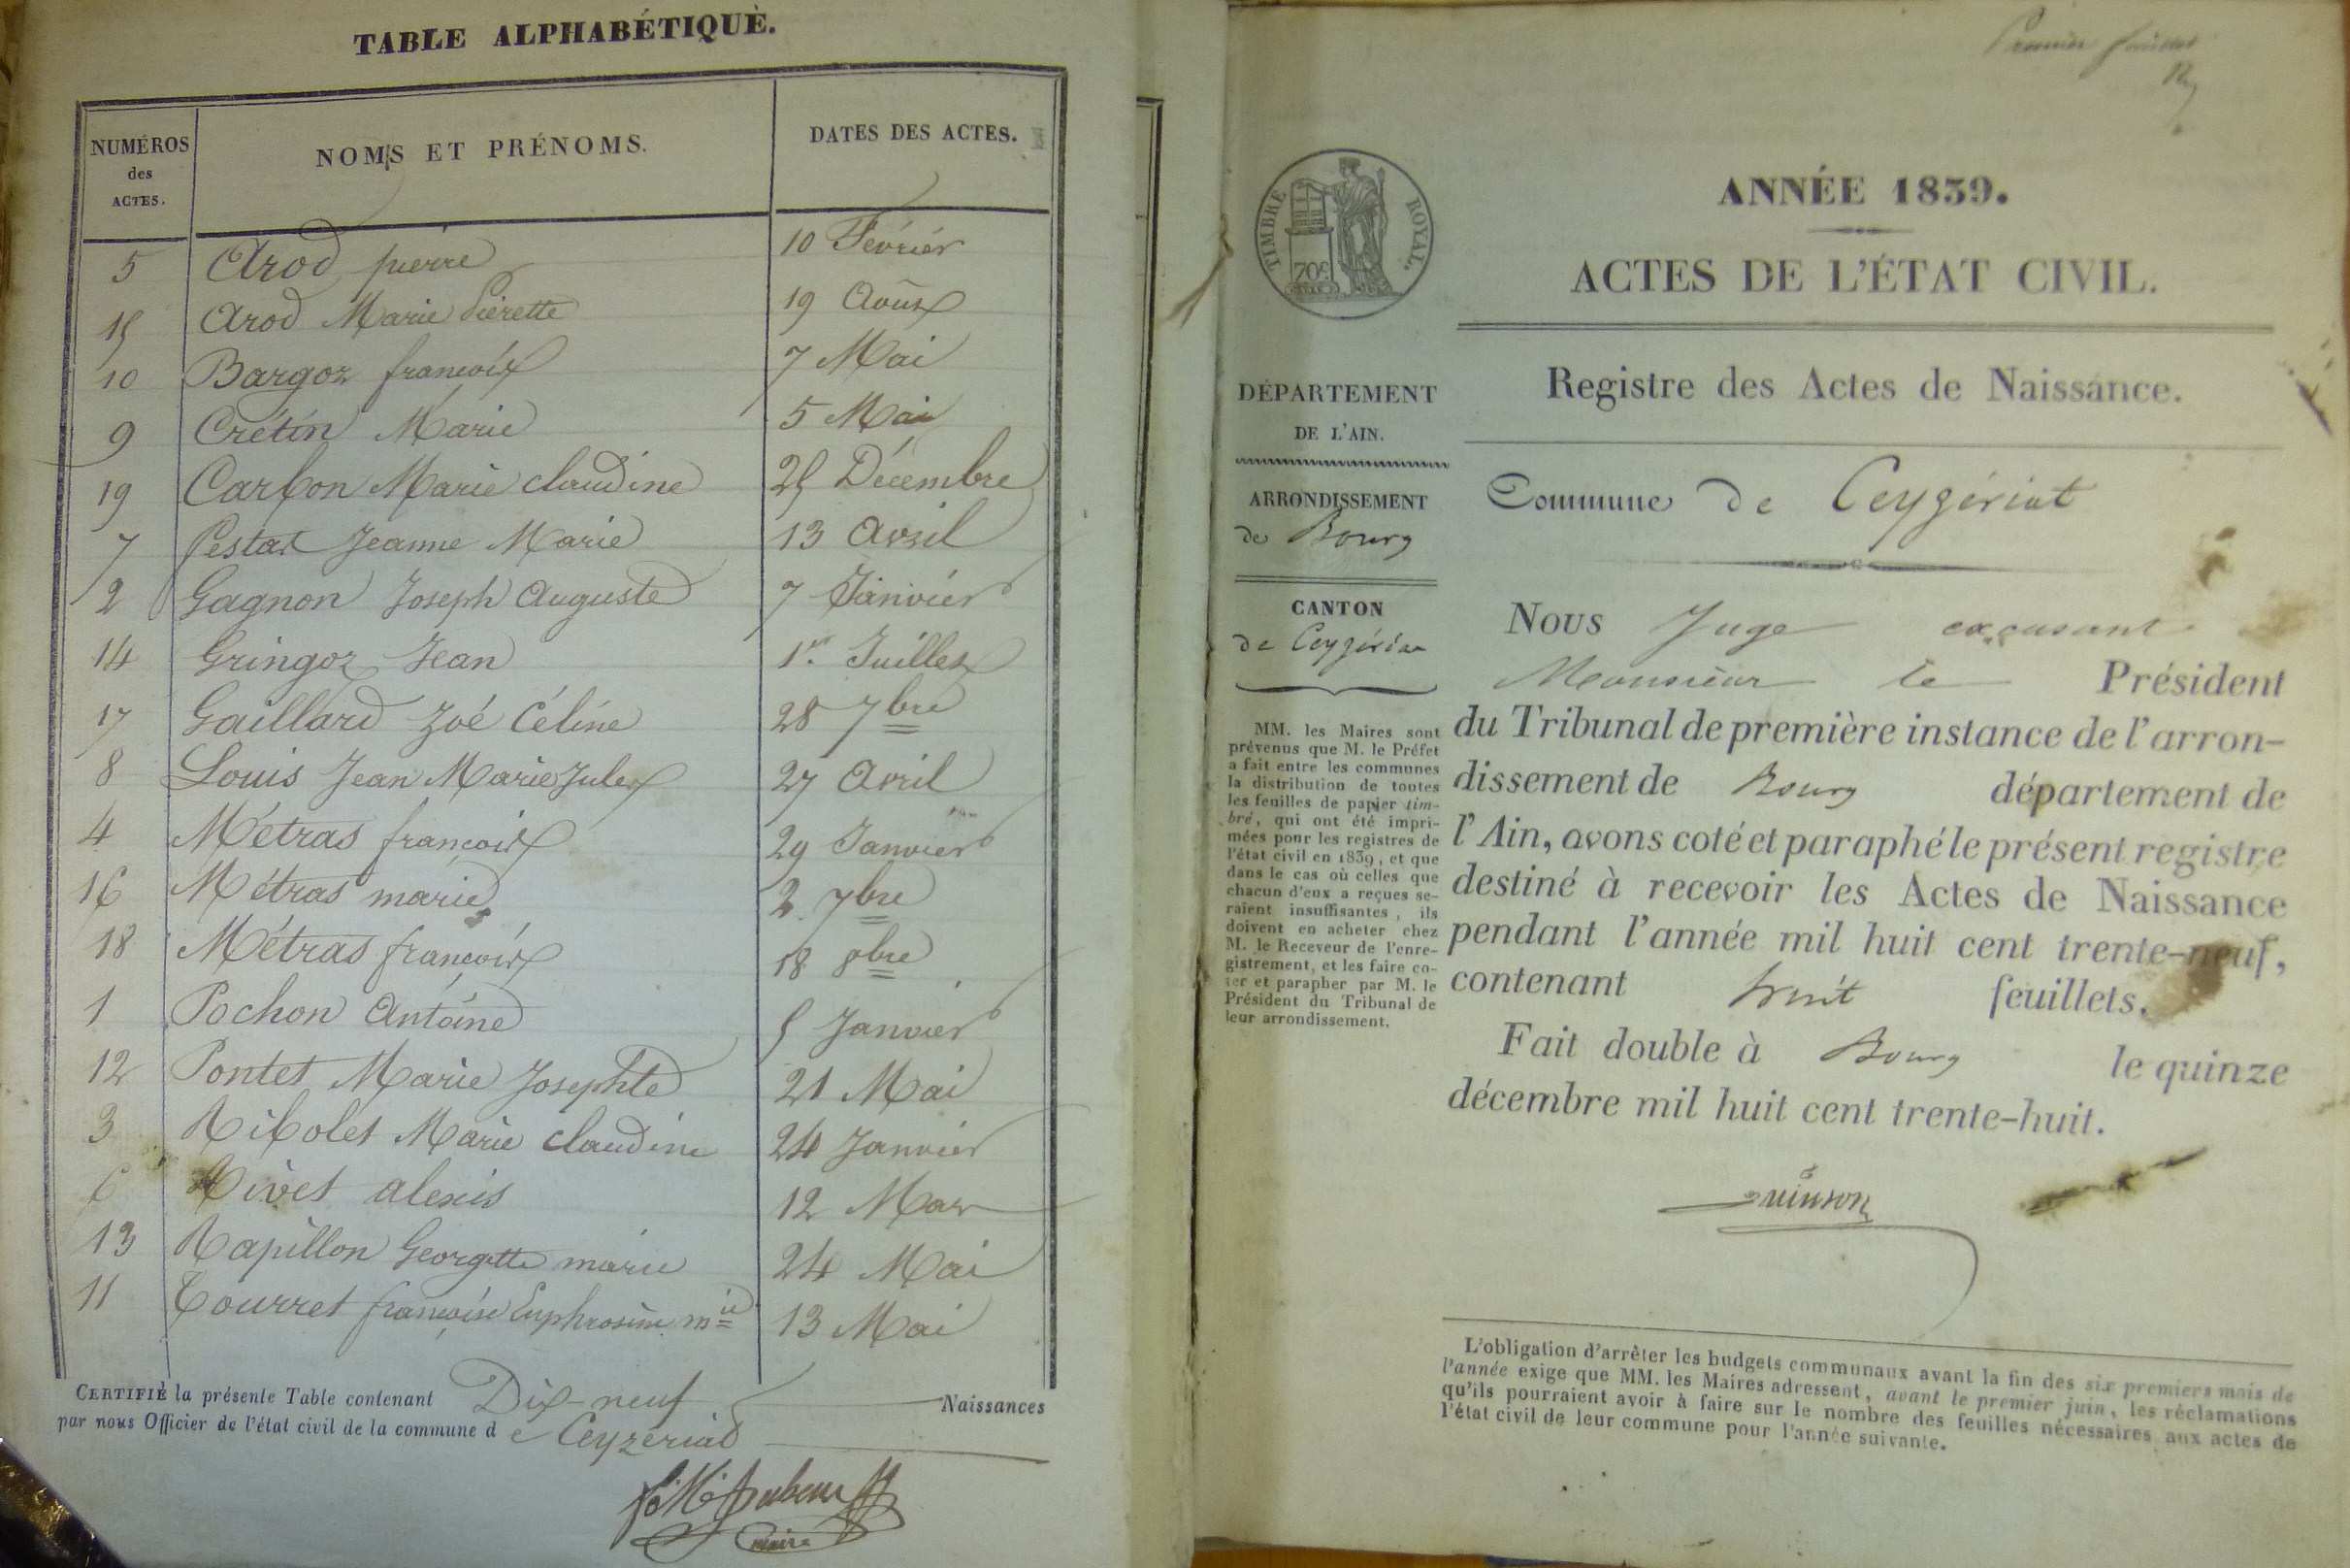 TABLE ALPHABÉTIQUE.
NUMÉROS des ACTES. NOMS ET PRÉNOMS. DATES DES ACTES.
5 Arod pierre 10 Février
15 Arod Marie Pierette 19 Août
10 Bargoz françois 7 Mai
9 Crétin Marie 5 Mai
19 Carbon Marie claudine 25 Décembre
7 Jeanne Marie 13 Avril
2 Gagnon Joseph Auguste 7 Janvier
14 Gringoz Jean 1er Juillet
17 Gaillard Zoé Céline 28 7bre
8 Louis Jean Marie Jules 27 Avril
4 Métras françois 29 Janvier
16 Métras marie 2 7bre
18 Métras françois 18 8bre
1 Pochon Antoine 5 Janvier
12 Pontet Marie Josephte 21 Mai
3 Ribolet Marie claudine 24 Janvier
6 Rivet alexis 12 Mars
13 Rapillon Georgette marie 24 Mai
11 Tourret françoise Euphrosine mie 13 Mai
CERTIFIÉ la présente Table contenant Dix-neuf Naissances
par nous Officier de l'état civil de la commune de Ceyzeriat
maire
Premier feuillet
ANNÉE 1839.
TIMBRE ROYAL.
70c
ACTES DE L'ÉTAT CIVIL.
Registre des Actes de Naissance.
DÉPARTEMENT
DE L'AIN.
ARRONDISSEMENT
de Bourg
CANTON
de Ceyzériat
MM. les Maires sont
prévenus que M. le Préfet
a fait entre les communes
la distribution de toutes
les feuilles de papier tim-
bré, qui ont été impri-
mées pour les registres de
l'état civil en 1839, et que
dans le cas où celles que
chacun d'eux a reçues se-
raient insuffisantes, ils
doivent en acheter chez
M. le Receveur de l'enre-
gistrement, et les faire co-
ter et parapher par M. le
Président du Tribunal de
leur arrondissement.
Commune de Ceyzériat
Nous Juge excusant
Monsieur le Président
du Tribunal de première instance de l'arron-
dissement de Bourg département de
l'Ain, avons coté et paraphé le présent registre
destiné à recevoir les Actes de Naissance
pendant l'année mil huit cent trente-neuf,
contenant huit feuillets.
Fait double à Bourg le quinze
décembre mil huit cent trente-huit.
Quinson
L'obligation d'arrêter les budgets communaux avant la fin des six premiers mois de
l'année exige que MM. les Maires adressent, avant le premier juin, les réclamations
qu'ils pourraient avoir à faire sur le nombre des feuilles nécessaires aux actes de
l'état civil de leur commune pour l'année suivante.